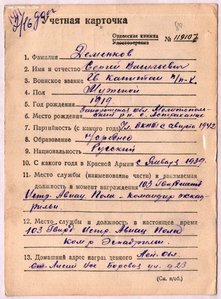 Учетная карточка
Орденская книжка
№
1. Фамилия Деменков
2. Имя и отчество Сергей Васильевич
3. Воинское звание Гв Капитан
4. Пол Мужской
5. Год рождения 1919
6. Место рождения
7. Партийность (с какого года) Чл ВКП(б) с августа 1942
8. Образование Среднее
9. Национальность Русский
10. С какого года в Красной Армии с Января 1939
11. Место службы (наименование части) и занимаемая
должность в момент награждения 103 Гвардейский
Истр. Авиац Полк - командир эскад-
рильи
12. Место службы и должность в настоящее время
103 Гвард Истр Авиац Полк
Комр Эскадрильи
13. Домашний адрес награжденного Лен. обл.
ст. Лисий Нос Боровая ул. д 23
(См. н/об.)